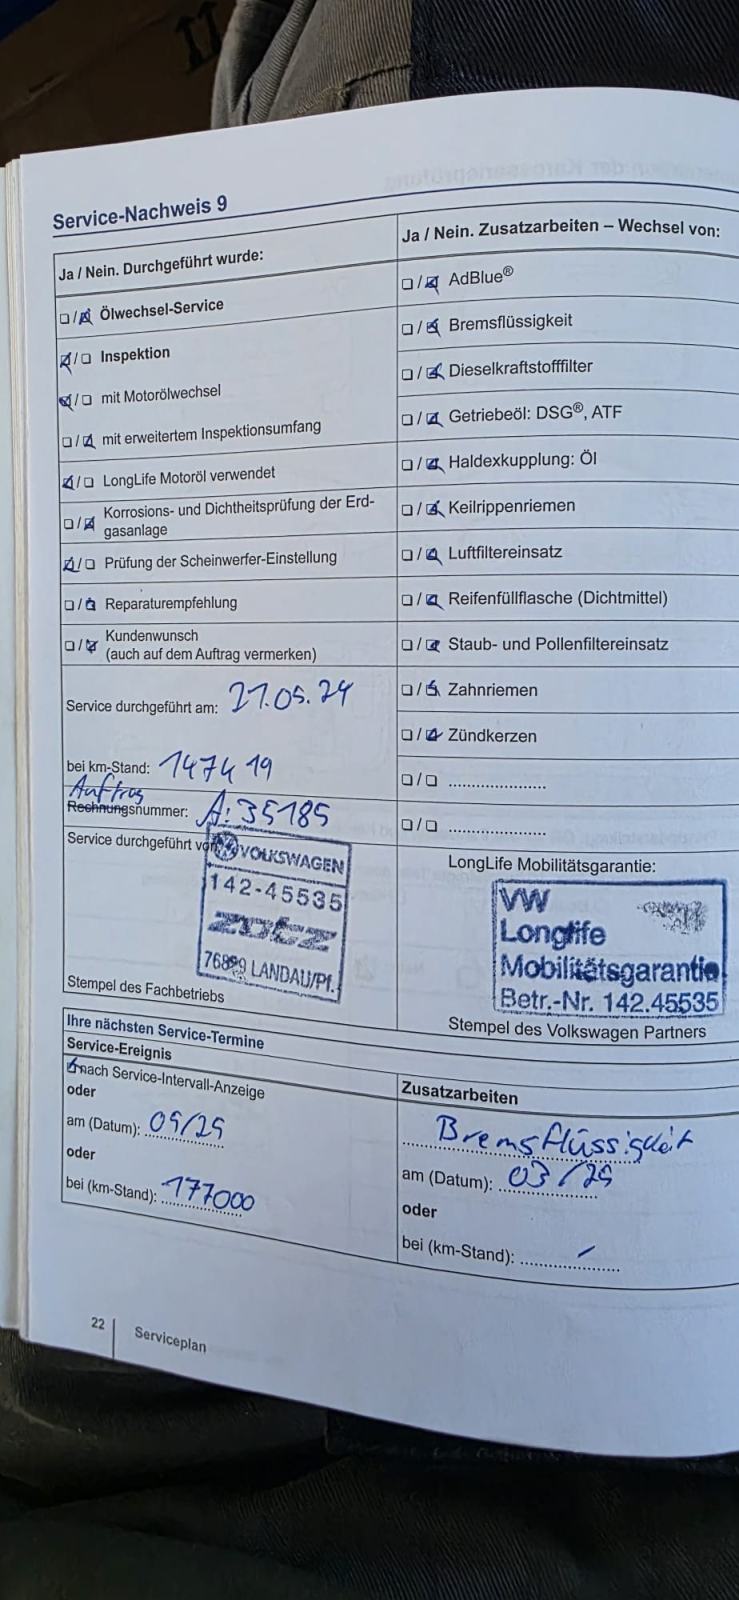 Service-Nachweis 9
Ja / Nein. Durchgeführt wurde:
☐/☒ Ölwechsel-Service
☒/☐ Inspektion
☒/☐ mit Motorölwechsel
☐/☒ mit erweitertem Inspektionsumfang
☒/☐ LongLife Motoröl verwendet
☐/☒ Korrosions- und Dichtheitsprüfung der Erd-
gasanlage
☒/☐ Prüfung der Scheinwerfer-Einstellung
☐/☒ Reparaturempfehlung
☐/☒ Kundenwunsch
(auch auf dem Auftrag vermerken)
Service durchgeführt am: 21.05.24
bei km-Stand: 147419
Auftrag
Rechnungsnummer: A: 35185
Service durchgeführt von:
VOLKSWAGEN
142-45535
zotz
76829 LANDAU/Pf.
Stempel des Fachbetriebs
Ja / Nein. Zusatzarbeiten – Wechsel von:
☐/☒ AdBlue®
☐/☒ Bremsflüssigkeit
☐/☒ Dieselkraftstofffilter
☐/☒ Getriebeöl: DSG®, ATF
☐/☒ Haldexkupplung: Öl
☐/☒ Keilrippenriemen
☐/☒ Luftfiltereinsatz
☐/☒ Reifenfüllflasche (Dichtmittel)
☐/☒ Staub- und Pollenfiltereinsatz
☐/☒ Zahnriemen
☐/☒ Zündkerzen
☐/☐ ......................
☐/☐ ......................
LongLife Mobilitätsgarantie:
VW
Longlife
Mobilitätsgarantie
Betr.-Nr. 142.45535
Stempel des Volkswagen Partners
Ihre nächsten Service-Termine
Service-Ereignis
☒ nach Service-Intervall-Anzeige
oder
am (Datum): 05/25
oder
bei (km-Stand): 177000
Zusatzarbeiten
Bremsflüssigkeit
am (Datum): 03/25
oder
bei (km-Stand): /
22 Serviceplan